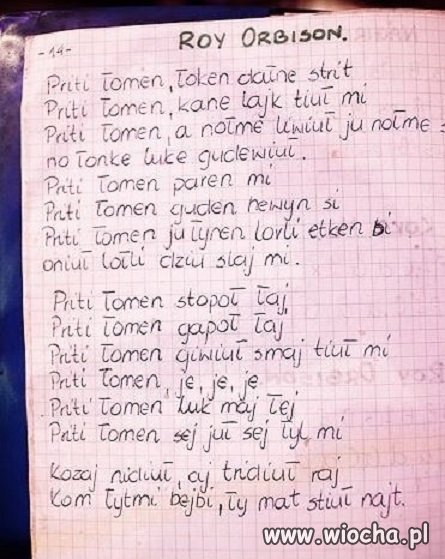 -14-
ROY ORBISON.
Priti Łomen, Łoken dałne strit
Priti Łomen, kane łajk tiuł mi
Priti Łomen, a nołme liwiuł ju nołme
no Łonke luke gudewiuł.
Priti Łomen paren mi
Priti Łomen guden hewyn si
Priti Łomen ju lyren lorli etken bi
oniuł lotli dziu slaj mi.
Priti Łomen stopoł Łaj
Priti Łomen gapoł Łaj
Priti Łomen giwiuł smaj tiuł mi
Priti Łomen, je, je, je
Priti Łomen łuk maj Łej
Priti Łomen sej juł sej łył mi
Kozaj nidiuł, aj tridiuł raj
Kom Łytmi bejbi, Ły mat stiuł najt.
www.wiocha.pl